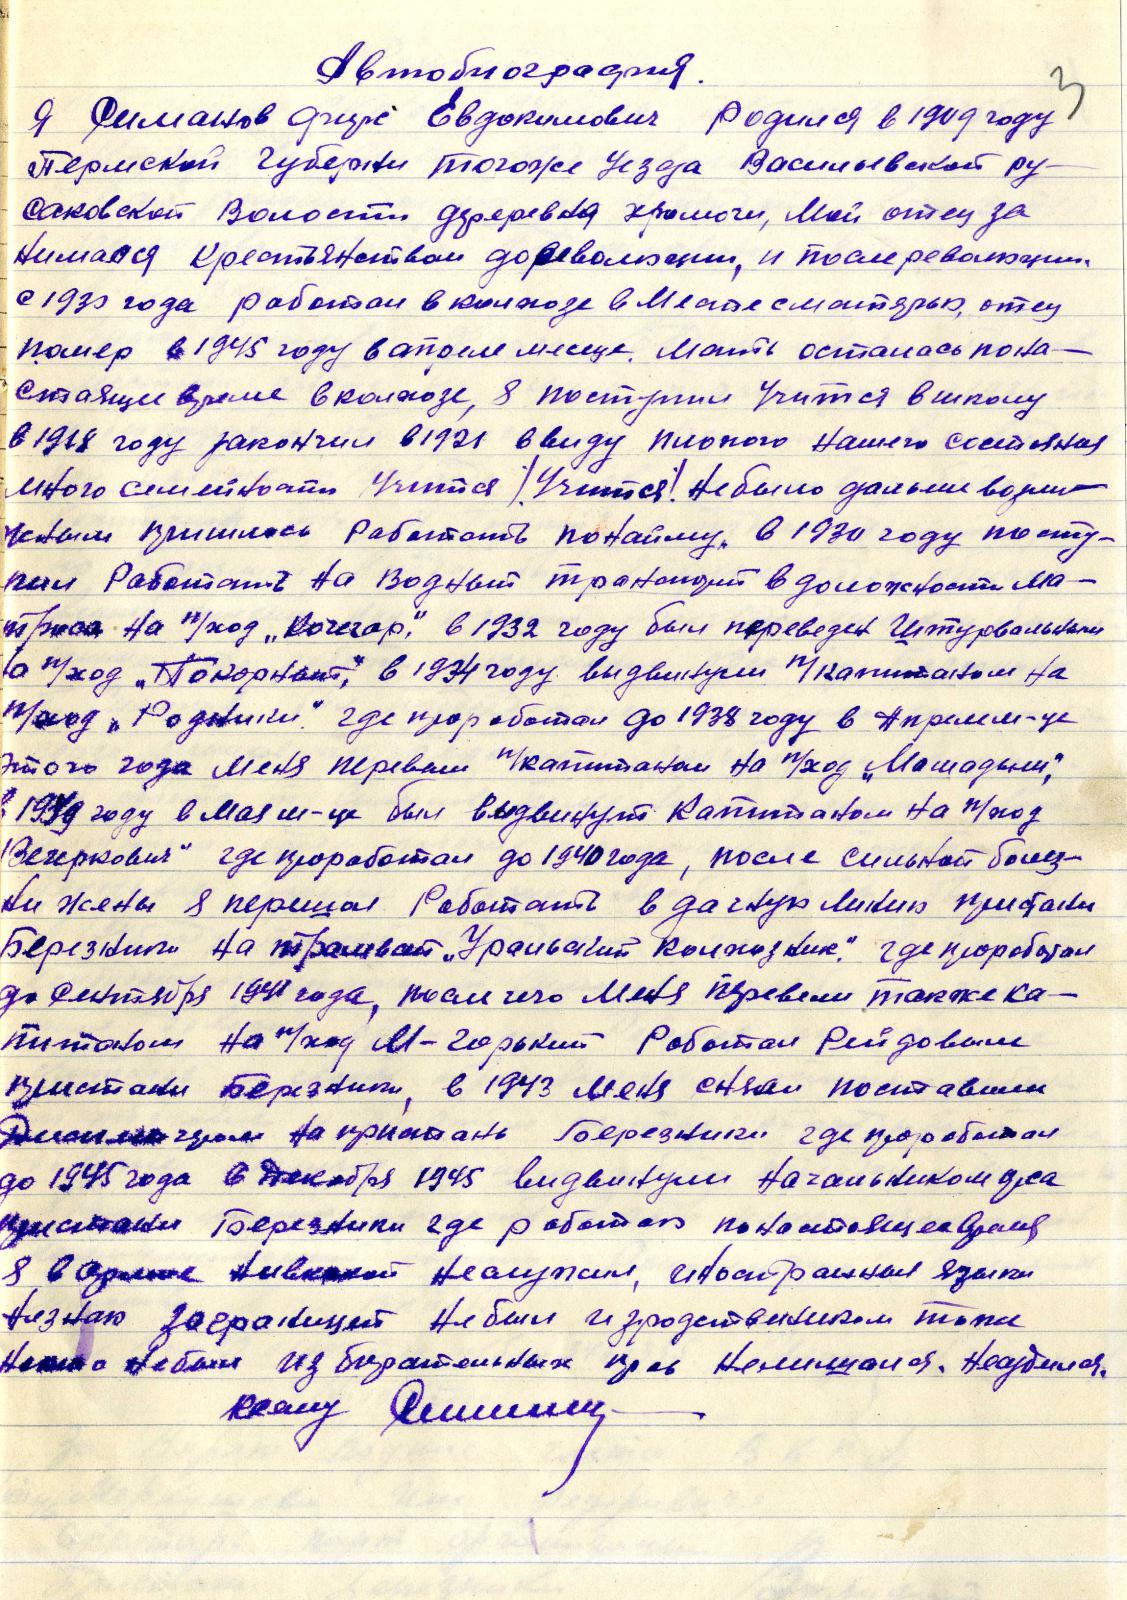 Автобиография.
3
Я Симанов Евдокимович Родился в 1909 году
Пермской Губерни тогоже Уезда Васильевской ру-
саковской Волости деревня хромочи, Мой отец за
нимался Крестьянством дореволюции, и послереволюции.
с 193 года работал в колхозе в Месте сматерью, отец
помер в 1945 году в апреле месеце. Мать осталась пона-
стоящие время в колхозе, Я поступил Учится в школу
в 1918 году закончил в 1921 ввиду плохого нашего состояния
много семейности Учится /Учится/ небыло дальше возмо-
жным пришлось Работать понайму. в 1930 году посту-
пил Работать на Водный транспорт в должности Ма-
троса на п/ход „Кочегар," в 1932 году был переведен Штурвальным
на п/ход „Покорный," в 1934 году выдвинули п/капитаном на
п/ход „Родники" где проработал до 1938 году в Апреле м-це
этого года меня перевели п/капитаном на п/ход
в 1939 году в Мая м-це был выдвинут Капитаном на п/ход
где проработал до 1940 года, после сильной болез-
ни жены я перешол Работать в дачную линию пристани
Березники на трамвай „Уральский колхозник." где проработал
до Сентября 1941 года, после чего Меня перевели также ка-
питаном на п/ход М-Горький Работал Рейдовым
пристани Березники, в 1943 меня сняли поставили
на пристань Березники где проработал
до 1945 года в Декабря 1945 выдвинули Начальником
пристани Березники где работаю понастоящее время
Я в армие неслужил, иностранных языки
незнаю заграницей небыл изродственников тоже
никто небыл избирательных прав нелишался. Несудился.
к сему